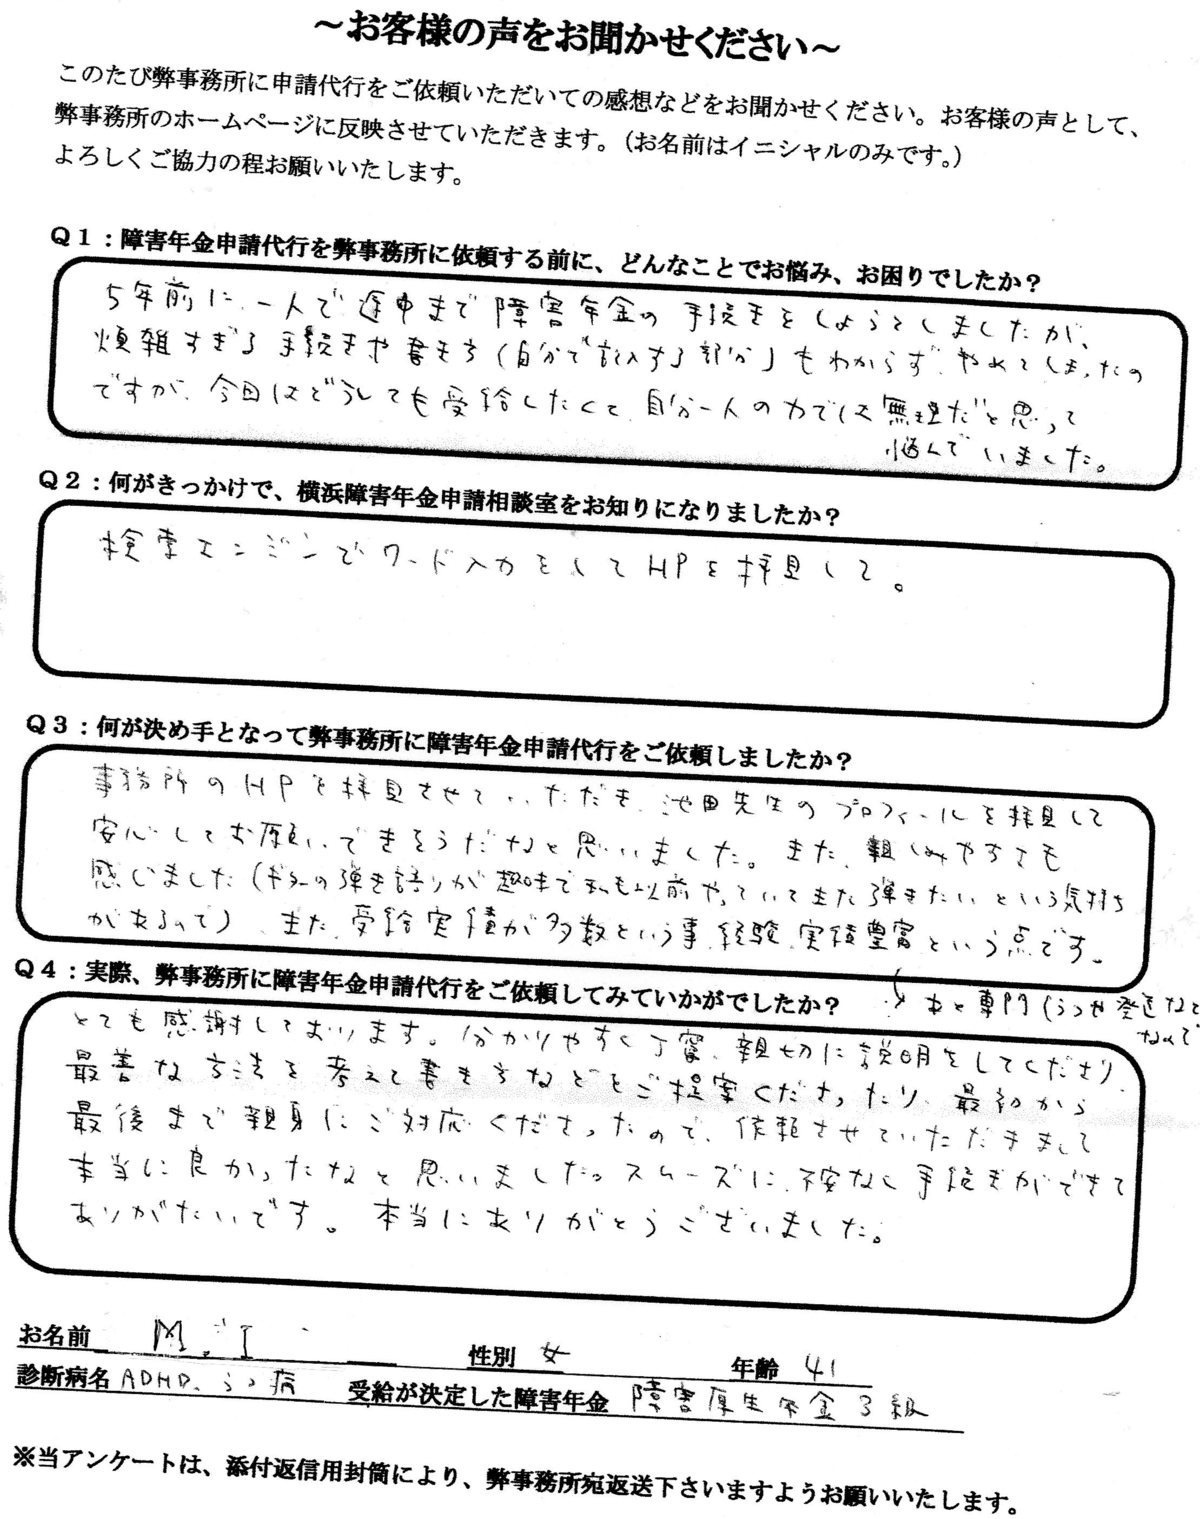 ～お客様の声をお聞かせください～
このたび弊事務所に申請代行をご依頼いただいての感想などをお聞かせください。お客様の声として、
弊事務所のホームページに反映させていただきます。（お名前はイニシャルのみです。）
よろしくご協力の程お願いいたします。
Ｑ１：障害年金申請代行を弊事務所に依頼する前に、どんなことでお悩み、お困りでしたか？
5年前に、一人で途中まで障害年金の手続きをしようとしましたが、
煩雑すぎる手続きや書き方(自分で記入する部分)もわからず、やめてしまったの
ですが、今回はどうしても受給したくて、自分一人の力では無理だと思って
悩んでいました。
Ｑ２：何がきっかけで、横浜障害年金申請相談室をお知りになりましたか？
検索エンジンでワード入力をしてHPを拝見して。
Ｑ３：何が決め手となって弊事務所に障害年金申請代行をご依頼しましたか？
事務所のHPを拝見させていただき、池田先生のプロフィールを拝見して
安心してお願いできそうだなと思いました。また、親しみやすさも
感じました(ギターの弾き語りが趣味で私も以前やっていてまた弾きたいという気持ち
があるので)、また、受給実績が多数という事、経験、実績豊富という点です。
Ｑ４：実際、弊事務所に障害年金申請代行をご依頼してみていかがでしたか？
あと専門(うつや発達など)
なので
とても感謝しております。分かりやすく丁寧、親切に説明をしてくださり、
最善な方法を考えて書き方などをご提案くださったり、最初から
最後まで親身にご対応くださったので、依頼させていただきまして
本当に良かったなと思いました。スムーズに、不安なく手続きができて
ありがたいです。本当にありがとうございました。
お名前 M.I 性別 女 年齢 41
診断病名 ADHD、うつ病 受給が決定した障害年金 障害厚生年金3級
※当アンケートは、添付返信用封筒により、弊事務所宛返送下さいますようお願いいたします。